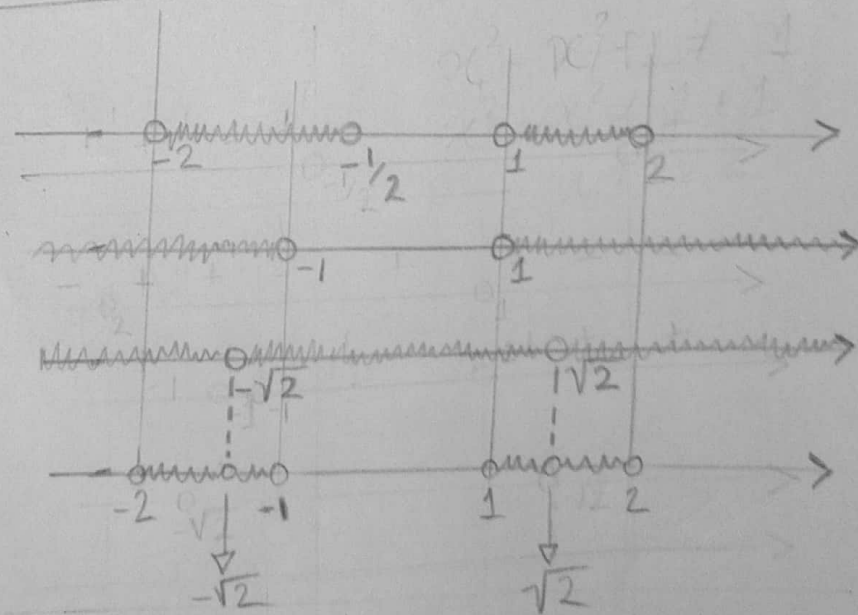 -2 -1/2 1 2
-1 1
-√2 √2
-2 -1 1 2
-√2 √2